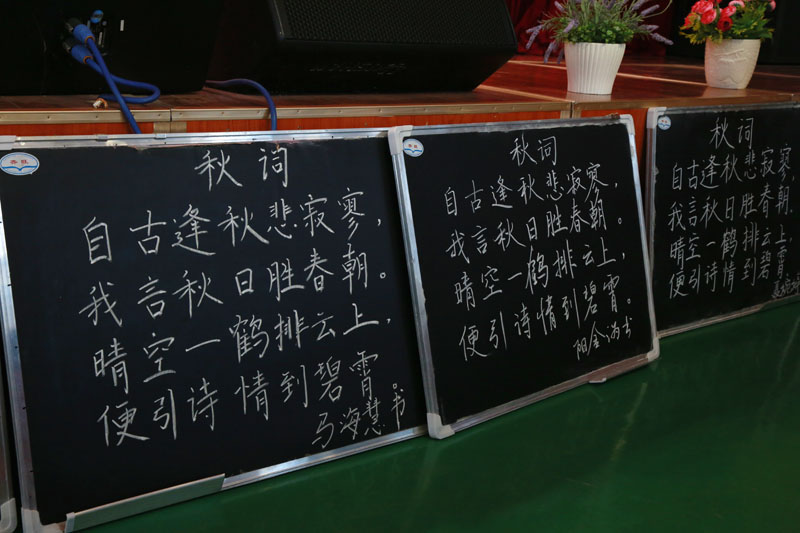 秋词
自古逢秋悲寂寥，
我言秋日胜春朝。
晴空一鹤排云上，
便引诗情到碧霄。
马海慧书
秋词
自古逢秋悲寂寥，
我言秋日胜春朝。
晴空一鹤排云上，
便引诗情到碧霄。
阳金沩书
秋词
自古逢秋悲寂寥，
我言秋日胜春朝，
晴空一鹤排云上，
便引诗情到碧霄